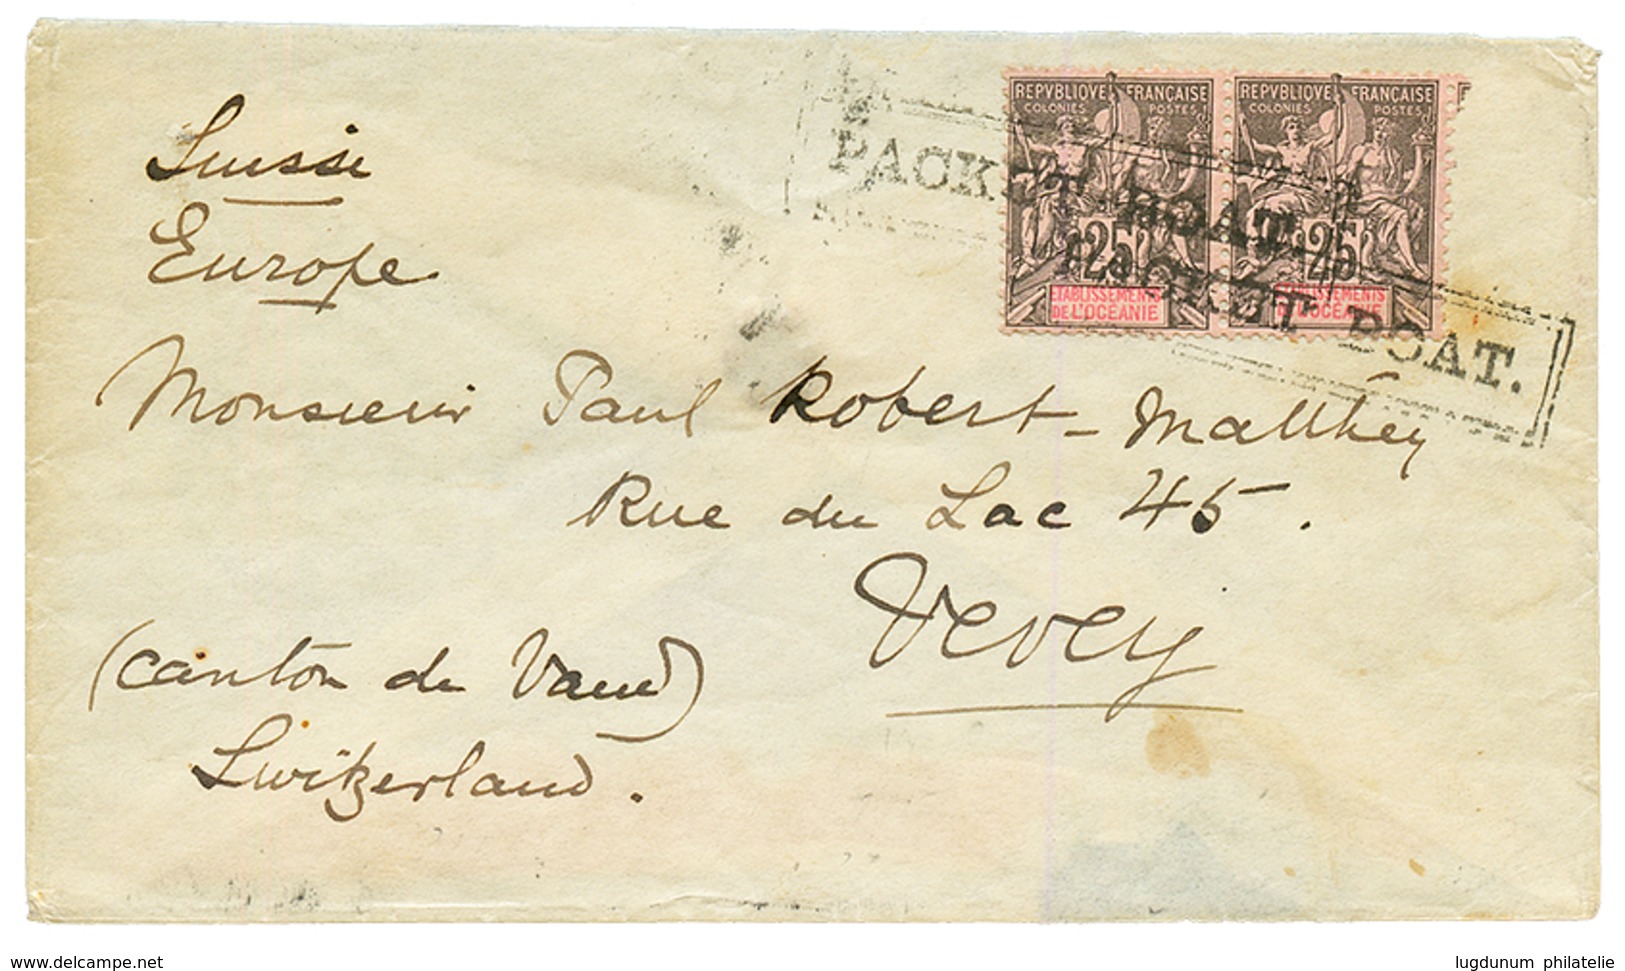 REPVBLIQVE FRANÇAISE REPVBLIQVE FRANÇAISE
COLONIES POSTES COLONIES POSTES
PACKET BOAT.
25 25
PACKET BOAT.
ETABLISSEMENTS ETABLISSEMENTS
DE L'OCEANIE DE L'OCEANIE
Suisse
Europe
Monsieur Paul Robert-Matthey
Rue du Lac 45.
Vevey
(canton de Vaud)
Switzerland.
delcampe.net
lugdunum philatelie